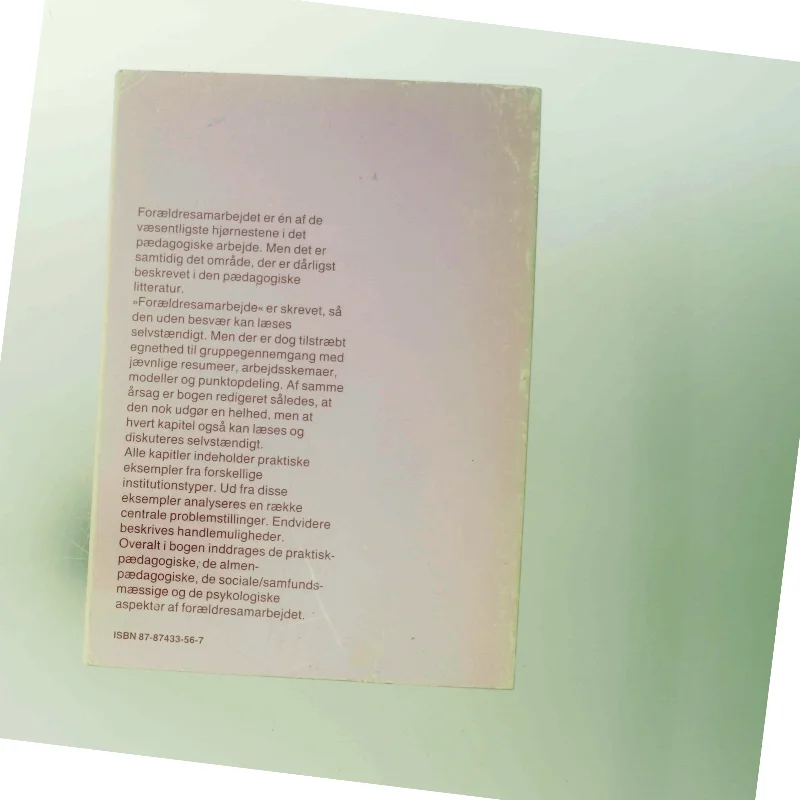 Forældresamarbejdet er én af de
væsentligste hjørnestene i det
pædagogiske arbejde. Men det er
samtidig det område, der er dårligst
beskrevet i den pædagogiske
litteratur.
»Forældresamarbejde« er skrevet, så
den uden besvær kan læses
selvstændigt. Men der er dog tilstræbt
egnethed til gruppegennemgang med
jævnlige resumeer, arbejdsskemaer,
modeller og punktopdeling. Af samme
årsag er bogen redigeret således, at
den nok udgør en helhed, men at
hvert kapitel også kan læses og
diskuteres selvstændigt.
Alle kapitler indeholder praktiske
eksempler fra forskellige
institutionstyper. Ud fra disse
eksempler analyseres en række
centrale problemstillinger. Endvidere
beskrives handlemuligheder.
Overalt i bogen inddrages de praktisk-
pædagogiske, de almen-
pædagogiske, de sociale/samfunds-
mæssige og de psykologiske
aspekter af forældresamarbejdet.
ISBN 87-87433-56-7